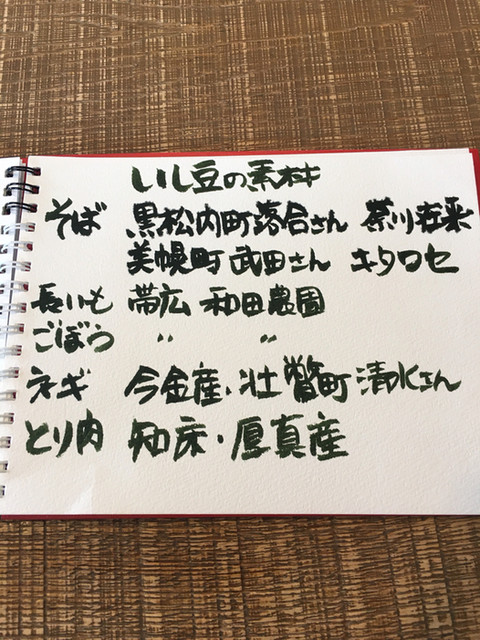 いし豆の素材
そば 黒松内町落合さん 奈川在来
美幌町 武田さん キタワセ
長いも 帯広 和田農園
ごぼう 〃 〃
ネギ 今金産・壮瞥町 清水さん
とり肉 知床・厚真産